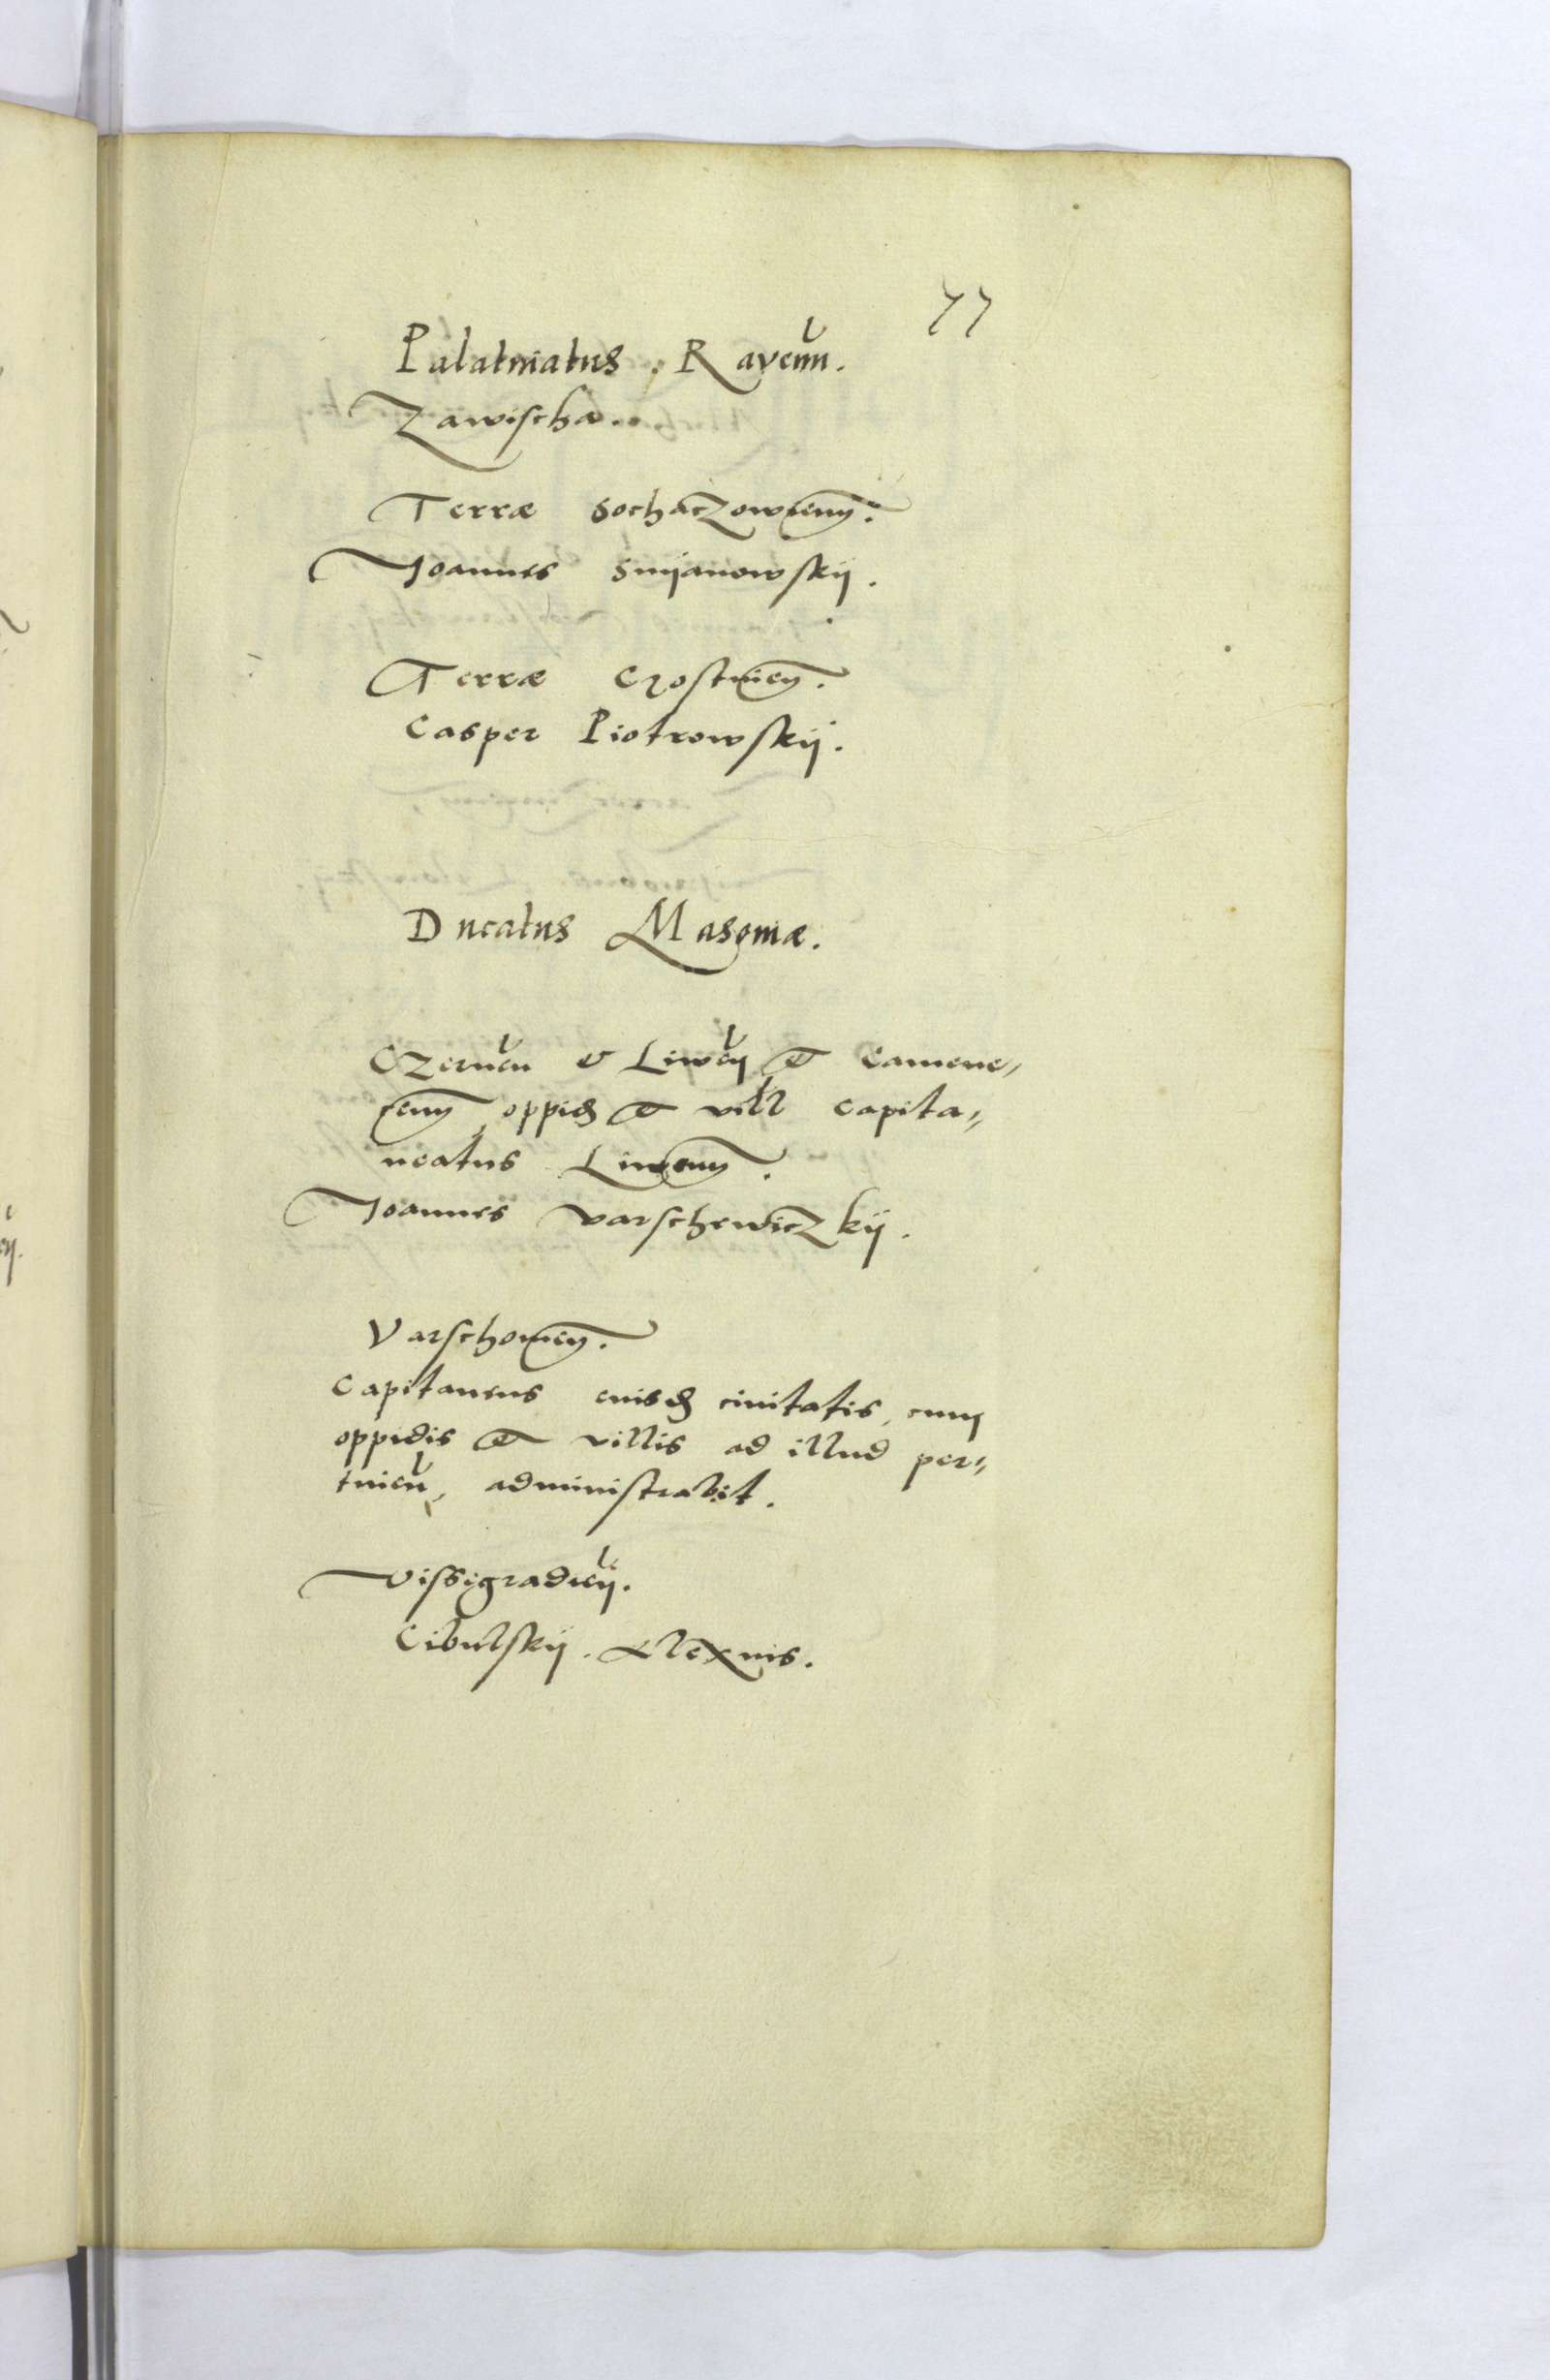 77
Palatinatus Ravenn.
Zawischa.
Terræ Sochaczowienn.
Joannes Smijanowskij.
Terræ Gostinien.
Casper Piotrowskij.
Ducatus Masoviæ.
Czernen & Liwen et Camene„
cenn oppid et vill capita„
neatus Liwenn.
Joannes Varschewiczkij.
Varschovien.
Capitaneus eiusd civitatis, cum
oppidis et villis ad illud per„
tinen, administrabit.
Vissigradien.
Cibulskij. Alexius.